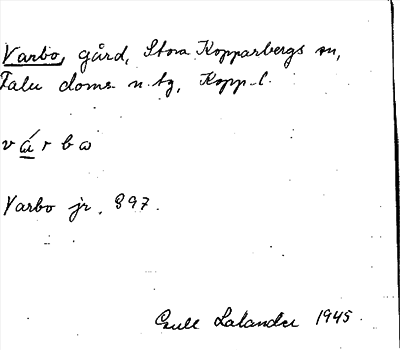 Varbo, gård, Stora Kopparbergs sn,
Falu doms. n. tg, Kopp. l.
várbω
Varbo jr. 897.
Gull Lalander 1945.